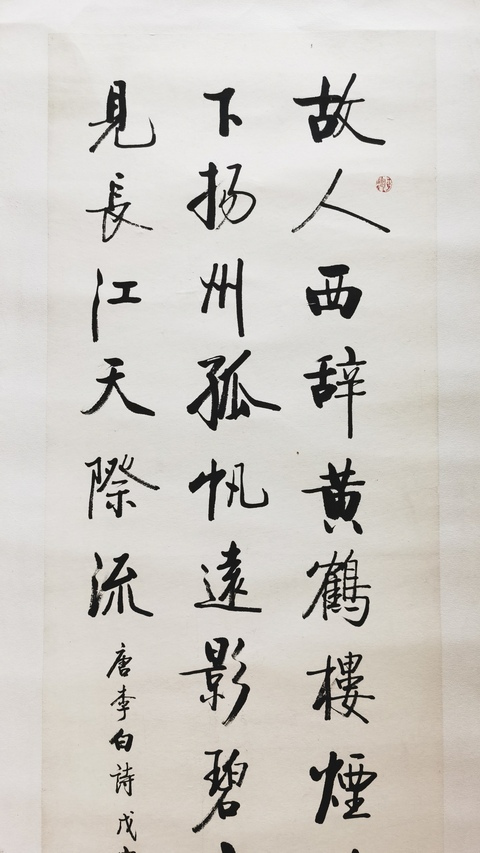 故人西辞黄鶴樓煙
下扬州孤帆遠影碧
見長江天際流
唐李白詩戊